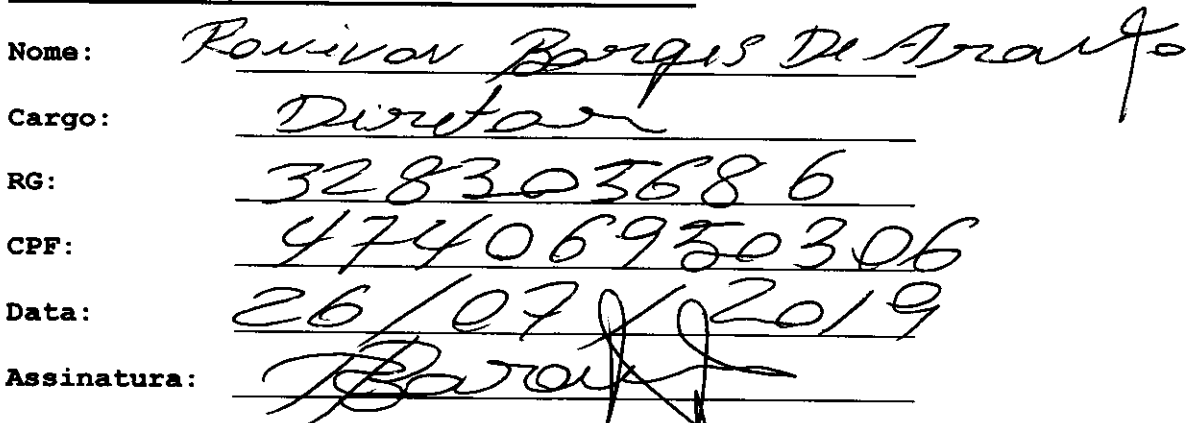 Nome: Ronivon Borges De Araujo
Cargo: Diretor
RG: 3283035686
CPF: 47406950306
Data: 26/07/2019
Assinatura: RBarauJo